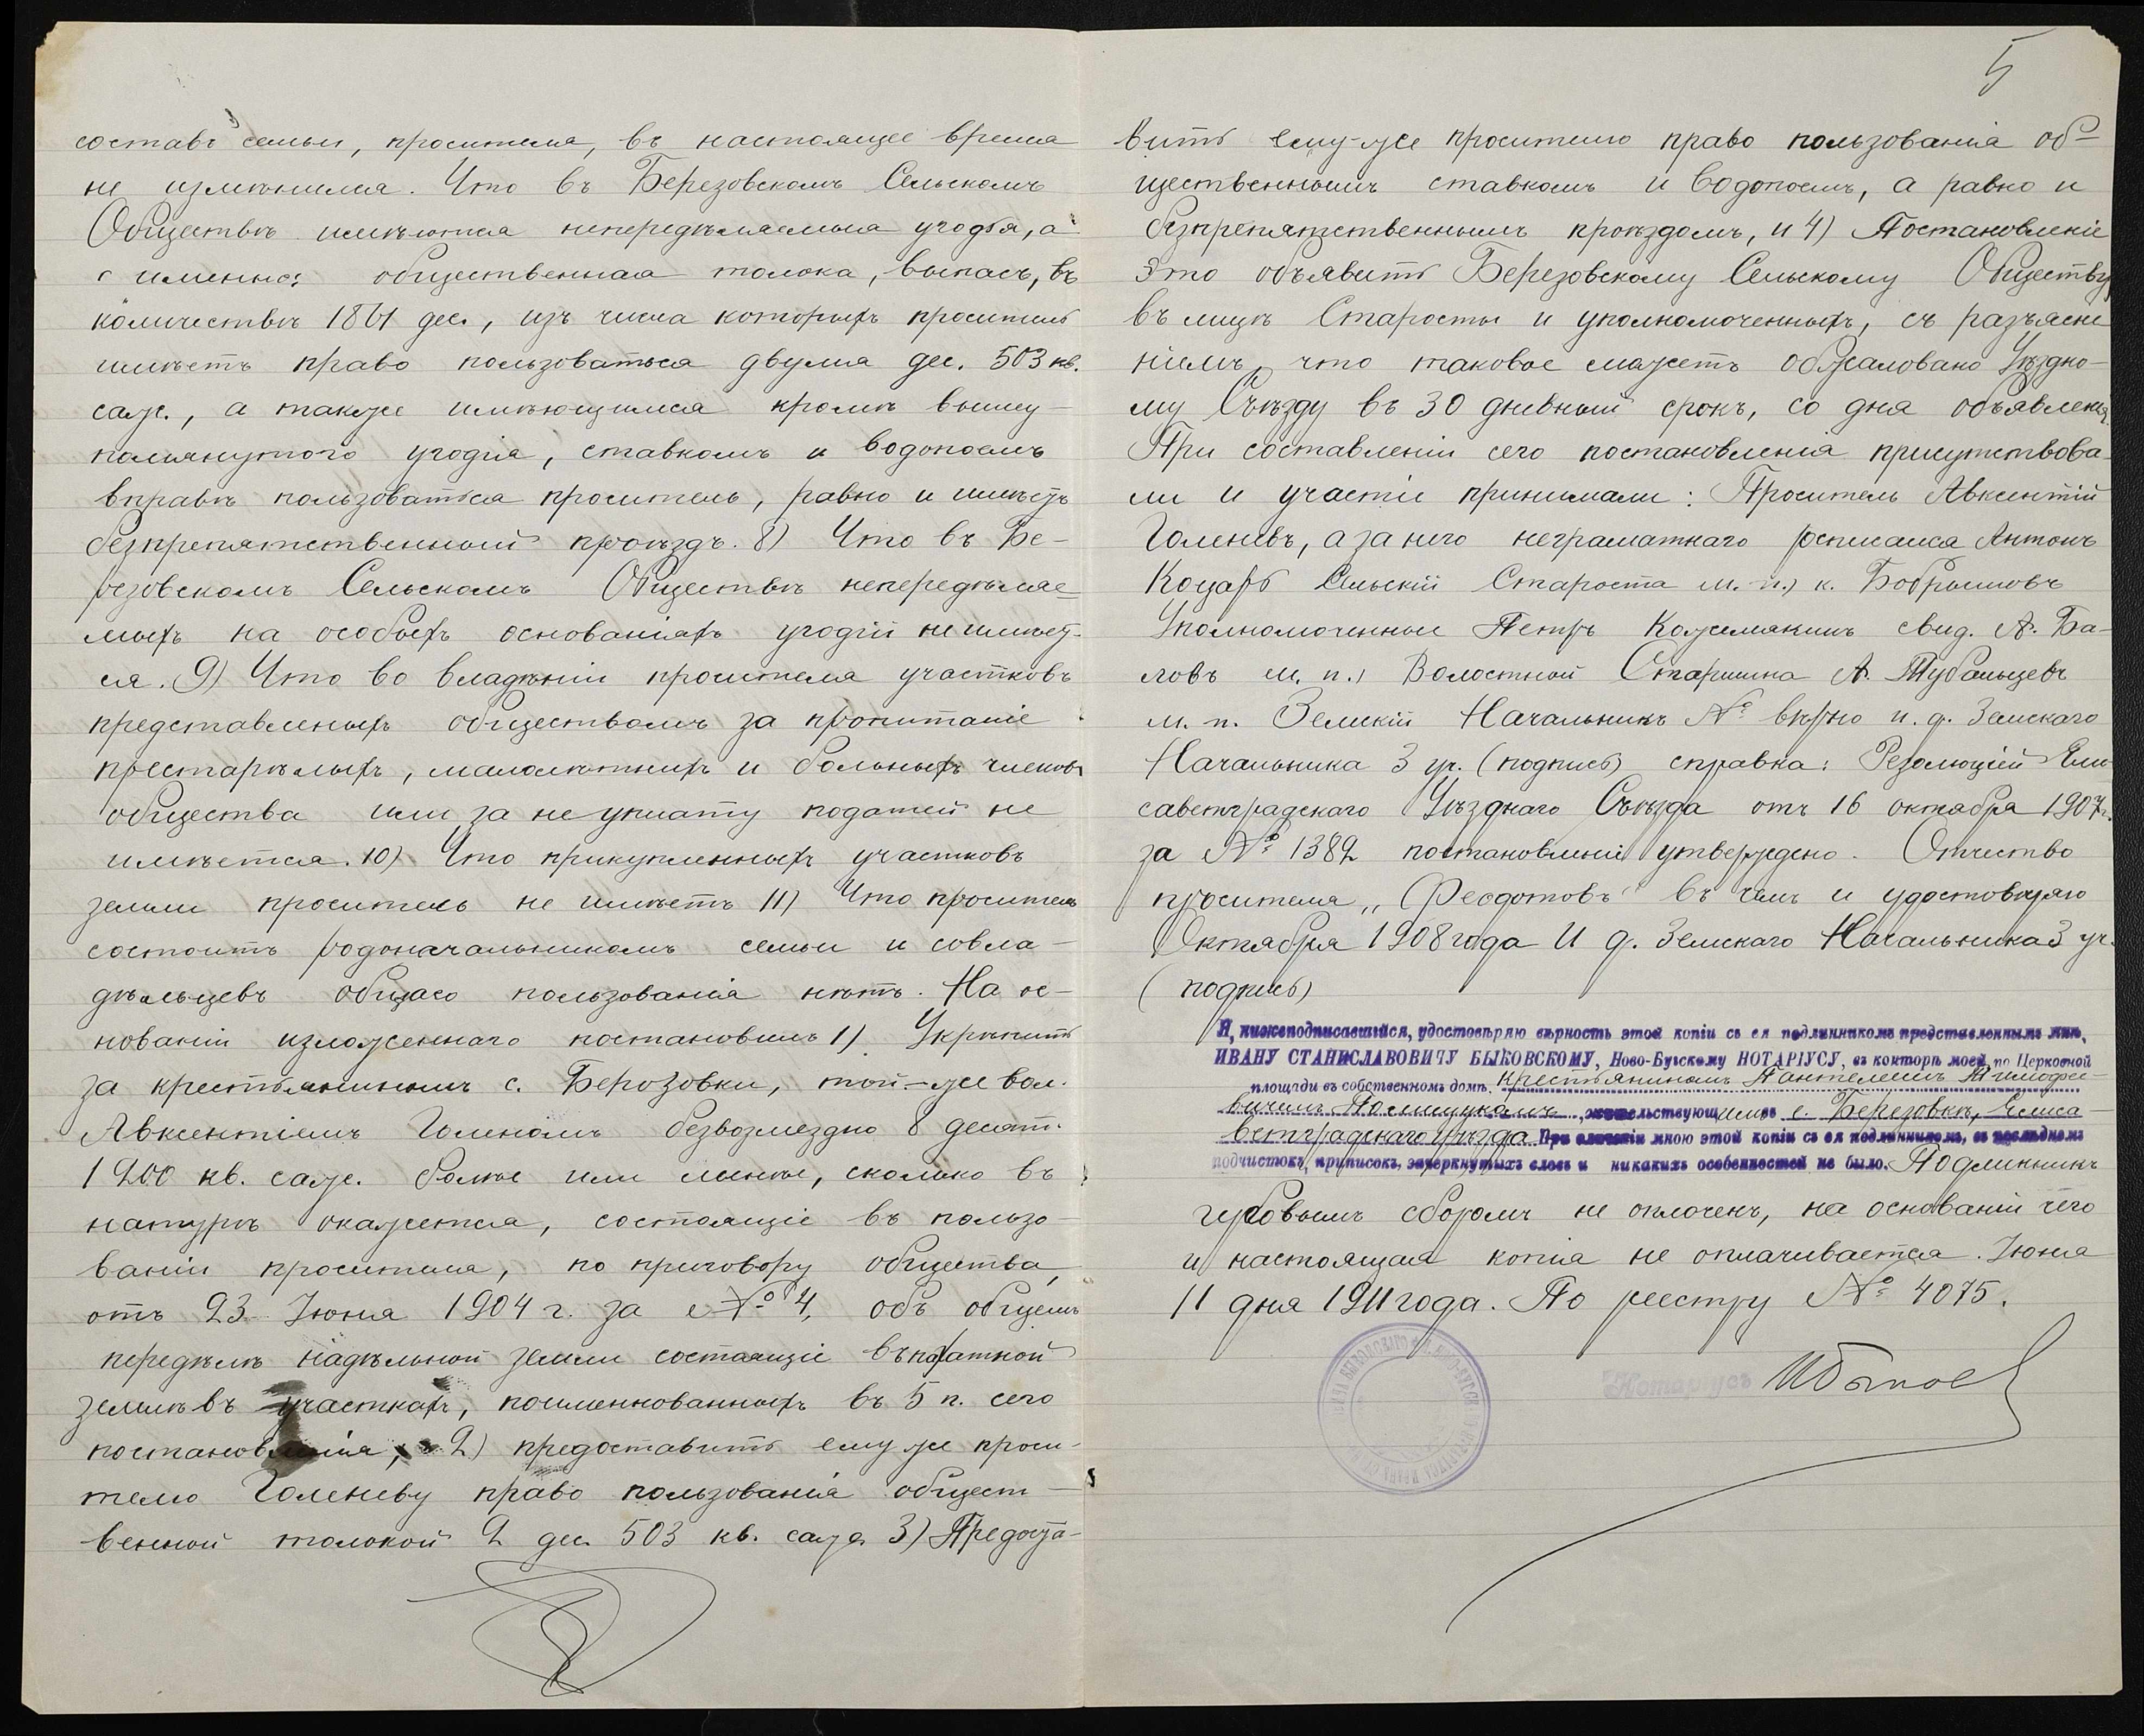 составъ семьи, просителя, въ настоящее время
не измѣнился. Что въ Березовскомъ Сельскомъ
Обществѣ имѣются непередѣляемыя угодья, а
именно: общественная толока, выпасъ, въ
количествѣ 1861 дес., изъ числа которыхъ проситель
имѣетъ право пользоваться двумя дес. 503 кв.
саж., а также имѣющимися кромѣ вышеу-
помянутого угодія, ставкомъ и водопоемъ
вправѣ пользоваться проситель, равно и имѣетъ
безпрепятственный проѣздъ. 8) Что въ Бе-
резовскомъ Сельскомъ Обществѣ непередѣляе-
мыхъ на особыхъ основаніяхъ угодій не имѣет-
ся. 9) Что во владѣніи просителя участковъ
представленыхъ обществомъ за пропитаніе
престарѣлыхъ, малолѣтнихъ и больныхъ членовъ
общества или за не уплату податей не
имѣется. 10) Что прикупленныхъ участковъ
земли проситель не имѣетъ 11) Что проситель
состоитъ родоначальникомъ семьи и совла-
дѣльцевъ общаго пользованія нѣтъ. На ос-
нованіи изложеннаго постановилъ 1) Укрѣпить
за крестьяниномъ с. Берозовки, той-же вол.
Авксентіемъ Голеномъ безвозмездно 8 десят.
1200 кв. саж. болѣе или менѣе, сколько въ
натурѣ окажется, состоящіе въ пользо-
ваніи просителя, по приговору общества,
отъ 23 Іюня 1904 г. за № 4, объ общемъ
передѣлѣ надѣльной земли состоящіе въ пахатной
землѣ въ участкахъ, поименнованныхъ въ 5 п. сего
постановленія, 2) предоставить ему же проси-
телю Голеневу право пользованія общест-
венной толокой 2 дес. 503 кв. саж. 3) Предоста-
5
вить ему-же просителю право пользованія об-
щественнымъ ставкомъ и водопоемъ, а равно и
безпрепятственнымъ проѣздомъ, и 4) Постановленіе
это объявить Березовскому Сельскому Обществу
въ лицѣ Старосты и уполномоченныхъ, съ разъясне
ніемъ, что таковое можетъ обжаловано Уѣздно-
му Съѣзду въ 30 дневный срокъ, со дня объявленія.
При составленіи сего постановленія присутствова-
ли и участіе принимали: Проситель Авксентій
Голеневъ, а за него неграматнаго росписался Антонъ
Коцарь Сельскій Староста м. п.) к. Бобрышовъ
Уполномоченные Петръ Кожемякинъ свид. А. Ба-
ловъ м. п.) Волостной Старшина А. Тубальцевъ
м. п. Земскій Начальникъ № вѣрно и. д. Земскаго
Начальника 3 уч. (подпись) справка: Резолюціей Ели
саветградскаго Уѣзднаго Съѣзда отъ 16 октября 1907 г.
за № 1382 постановленіе утверждено. Отчество
просителя „Феодотовъ" въ чемъ и удостовѣряю
Октября 1908 года И д. Земскаго Начальника 3 уч.
(подпись)
Я, нижеподписавшійся, удостовѣряю вѣрность этой копіи съ ея подлинникомъ представленнымъ мнѣ,
ИВАНУ СТАНИСЛАВОВИЧУ БЫКОВСКОМУ, Ново-Бугскому НОТАРІУСУ, въ конторѣ моей, по Церковной
площади въ собственномъ домѣ, крестьяниномъ Пантелеемъ Тимофее-
вичемъ Полищукомъ, жительствующимъ въ с. Березовкѣ, Елиса
ветградскаго уѣзда При сличеніи мною этой копіи съ ея подлинникомъ, въ послѣднемъ
подчистокъ, приписокъ, зачеркнутыхъ словъ и никакихъ особенностей не было. Подлинникъ
гербовымъ сборомъ не оплоченъ, на основаніи чего
и настоящая копія не оплачивается. Іюня
11 дня 1911 года. По реестру № 4075.
Нотаріусъ